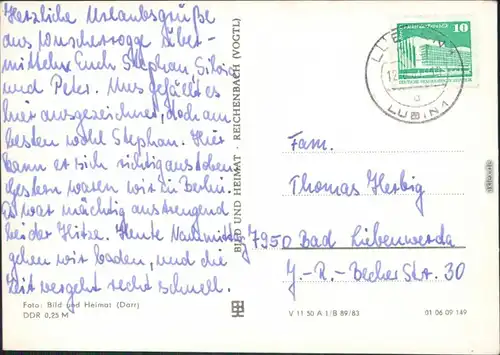 Herzliche Urlaubsgrüße
aus Wuscherrooge über-
mitteln Euch Stephan, Silvia
und Peter. Uns gefällt es
hier ausgezeichnet, doch am
besten wohl Stephan. Hier
kann er sich richtig austoben.
Gestern waren wir in Berlin.
Es war mächtig anstrengend
bei der Hitze. Heute Nachmittag
gehen wir baden, und die
Zeit vergeht recht schnell.
Foto: Bild und Heimat (Darr)
DDR 0,25 M
BILD UND HEIMAT · REICHENBACH (VOGTL)
10
LUBIN 1
Fam.
Thomas Herbig
7950 Bad Liebenwerda
J.-R.-Becher Str. 30
V 11 50 A 1/B 89/83
01 06 09 149